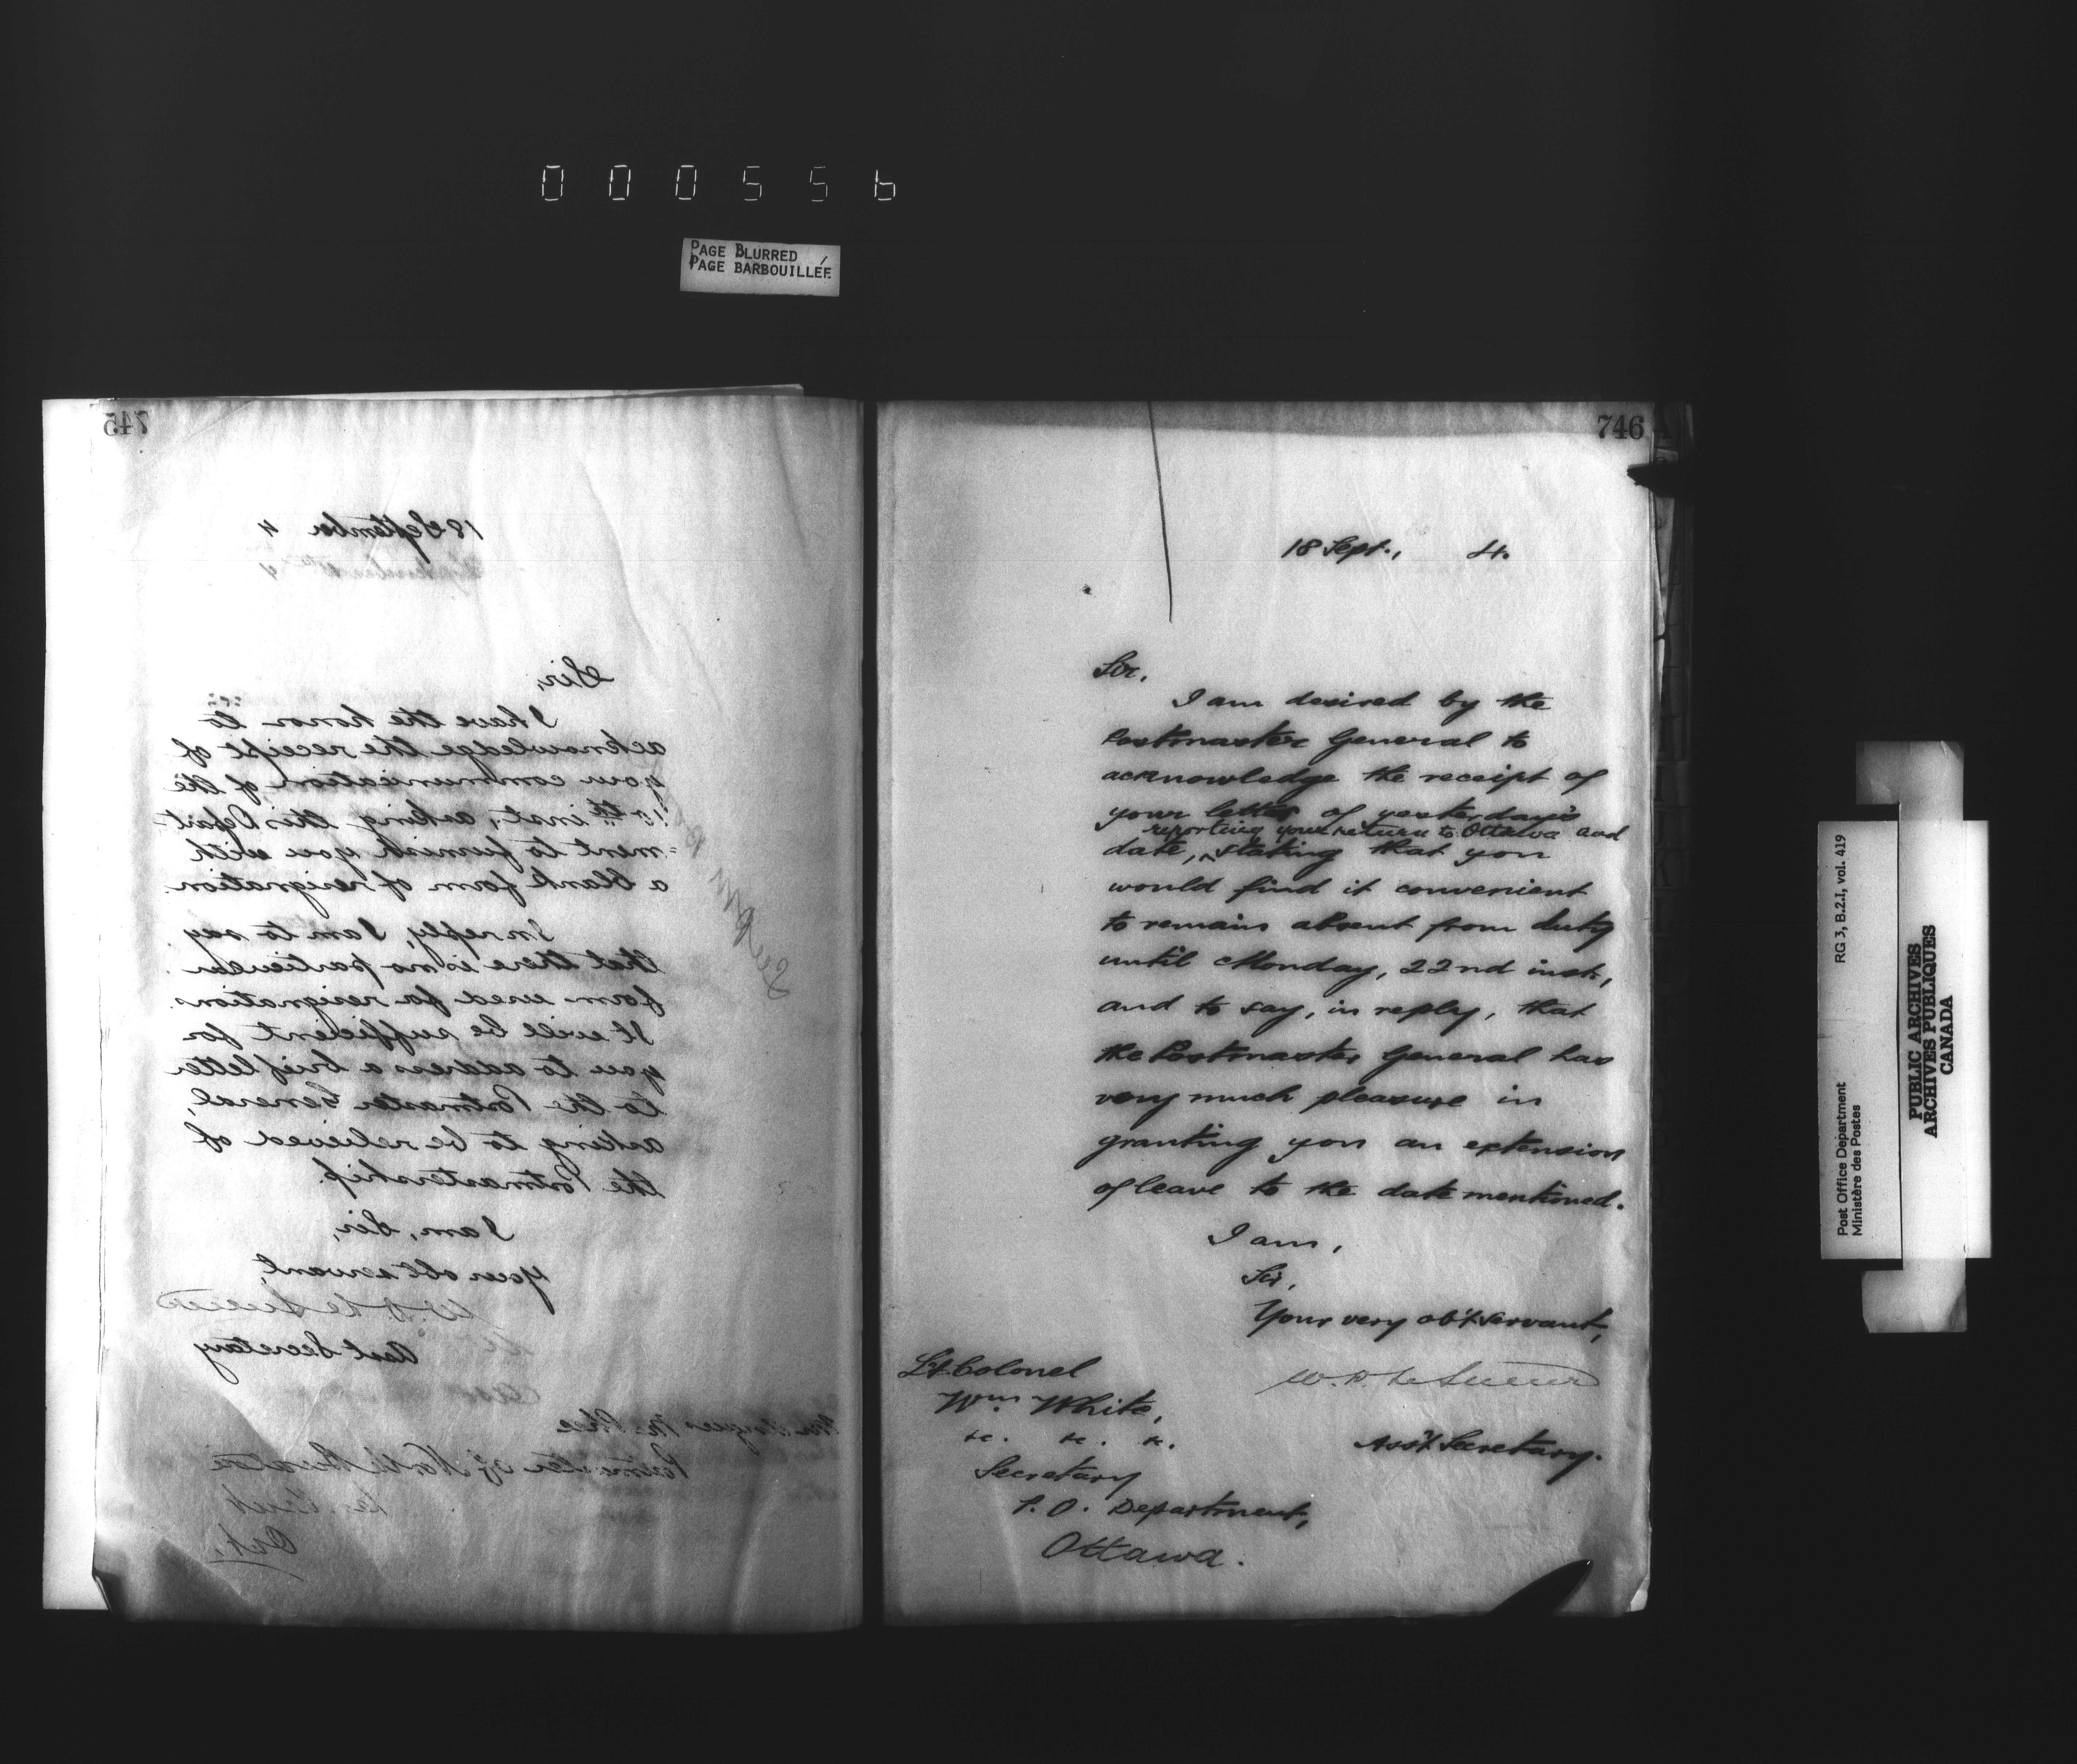 000556
PAGE BLURRED
PAGE BARBOUILLÉE
745
18 September 4
Sir,
I have the honor to
acknowledge the receipt of
your communication of the
15th inst, asking this Depart-
-ment to furnish you with
a blank form of resignation.
In reply, I am to say
that there is no particular
form used for resignations.
It will be sufficient for
you to address a brief letter
to the Postmaster General,
asking to be relieved of
the Postmastership.
I am, Sir,
Your obt servant,
W. D. Le Sueur
Asst Secretary
Mr Angus McPhee
Postmaster of North
Ont.
746
18 Sept., 4.
Sir,
I am desired by the
Postmaster General to
acknowledge the receipt of
your letter of yesterday's
reporting your return to Ottawa and
date, ^ stating that you
would find it convenient
to remain absent from duty
until Monday, 22nd inst.,
and to say, in reply, that
the Postmaster General has
very much pleasure in
granting you an extension
of leave to the date mentioned.
I am,
Sir,
Your very ob't servant,
W. D. Le Sueur
Ass't Secretary.
Lt Colonel
Wm White,
&c. &c. &c.
Secretary
P. O. Department,
Ottawa.
RG 3, B.2.I, vol. 419
Post Office Department
Ministère des Postes
PUBLIC ARCHIVES
ARCHIVES PUBLIQUES
CANADA